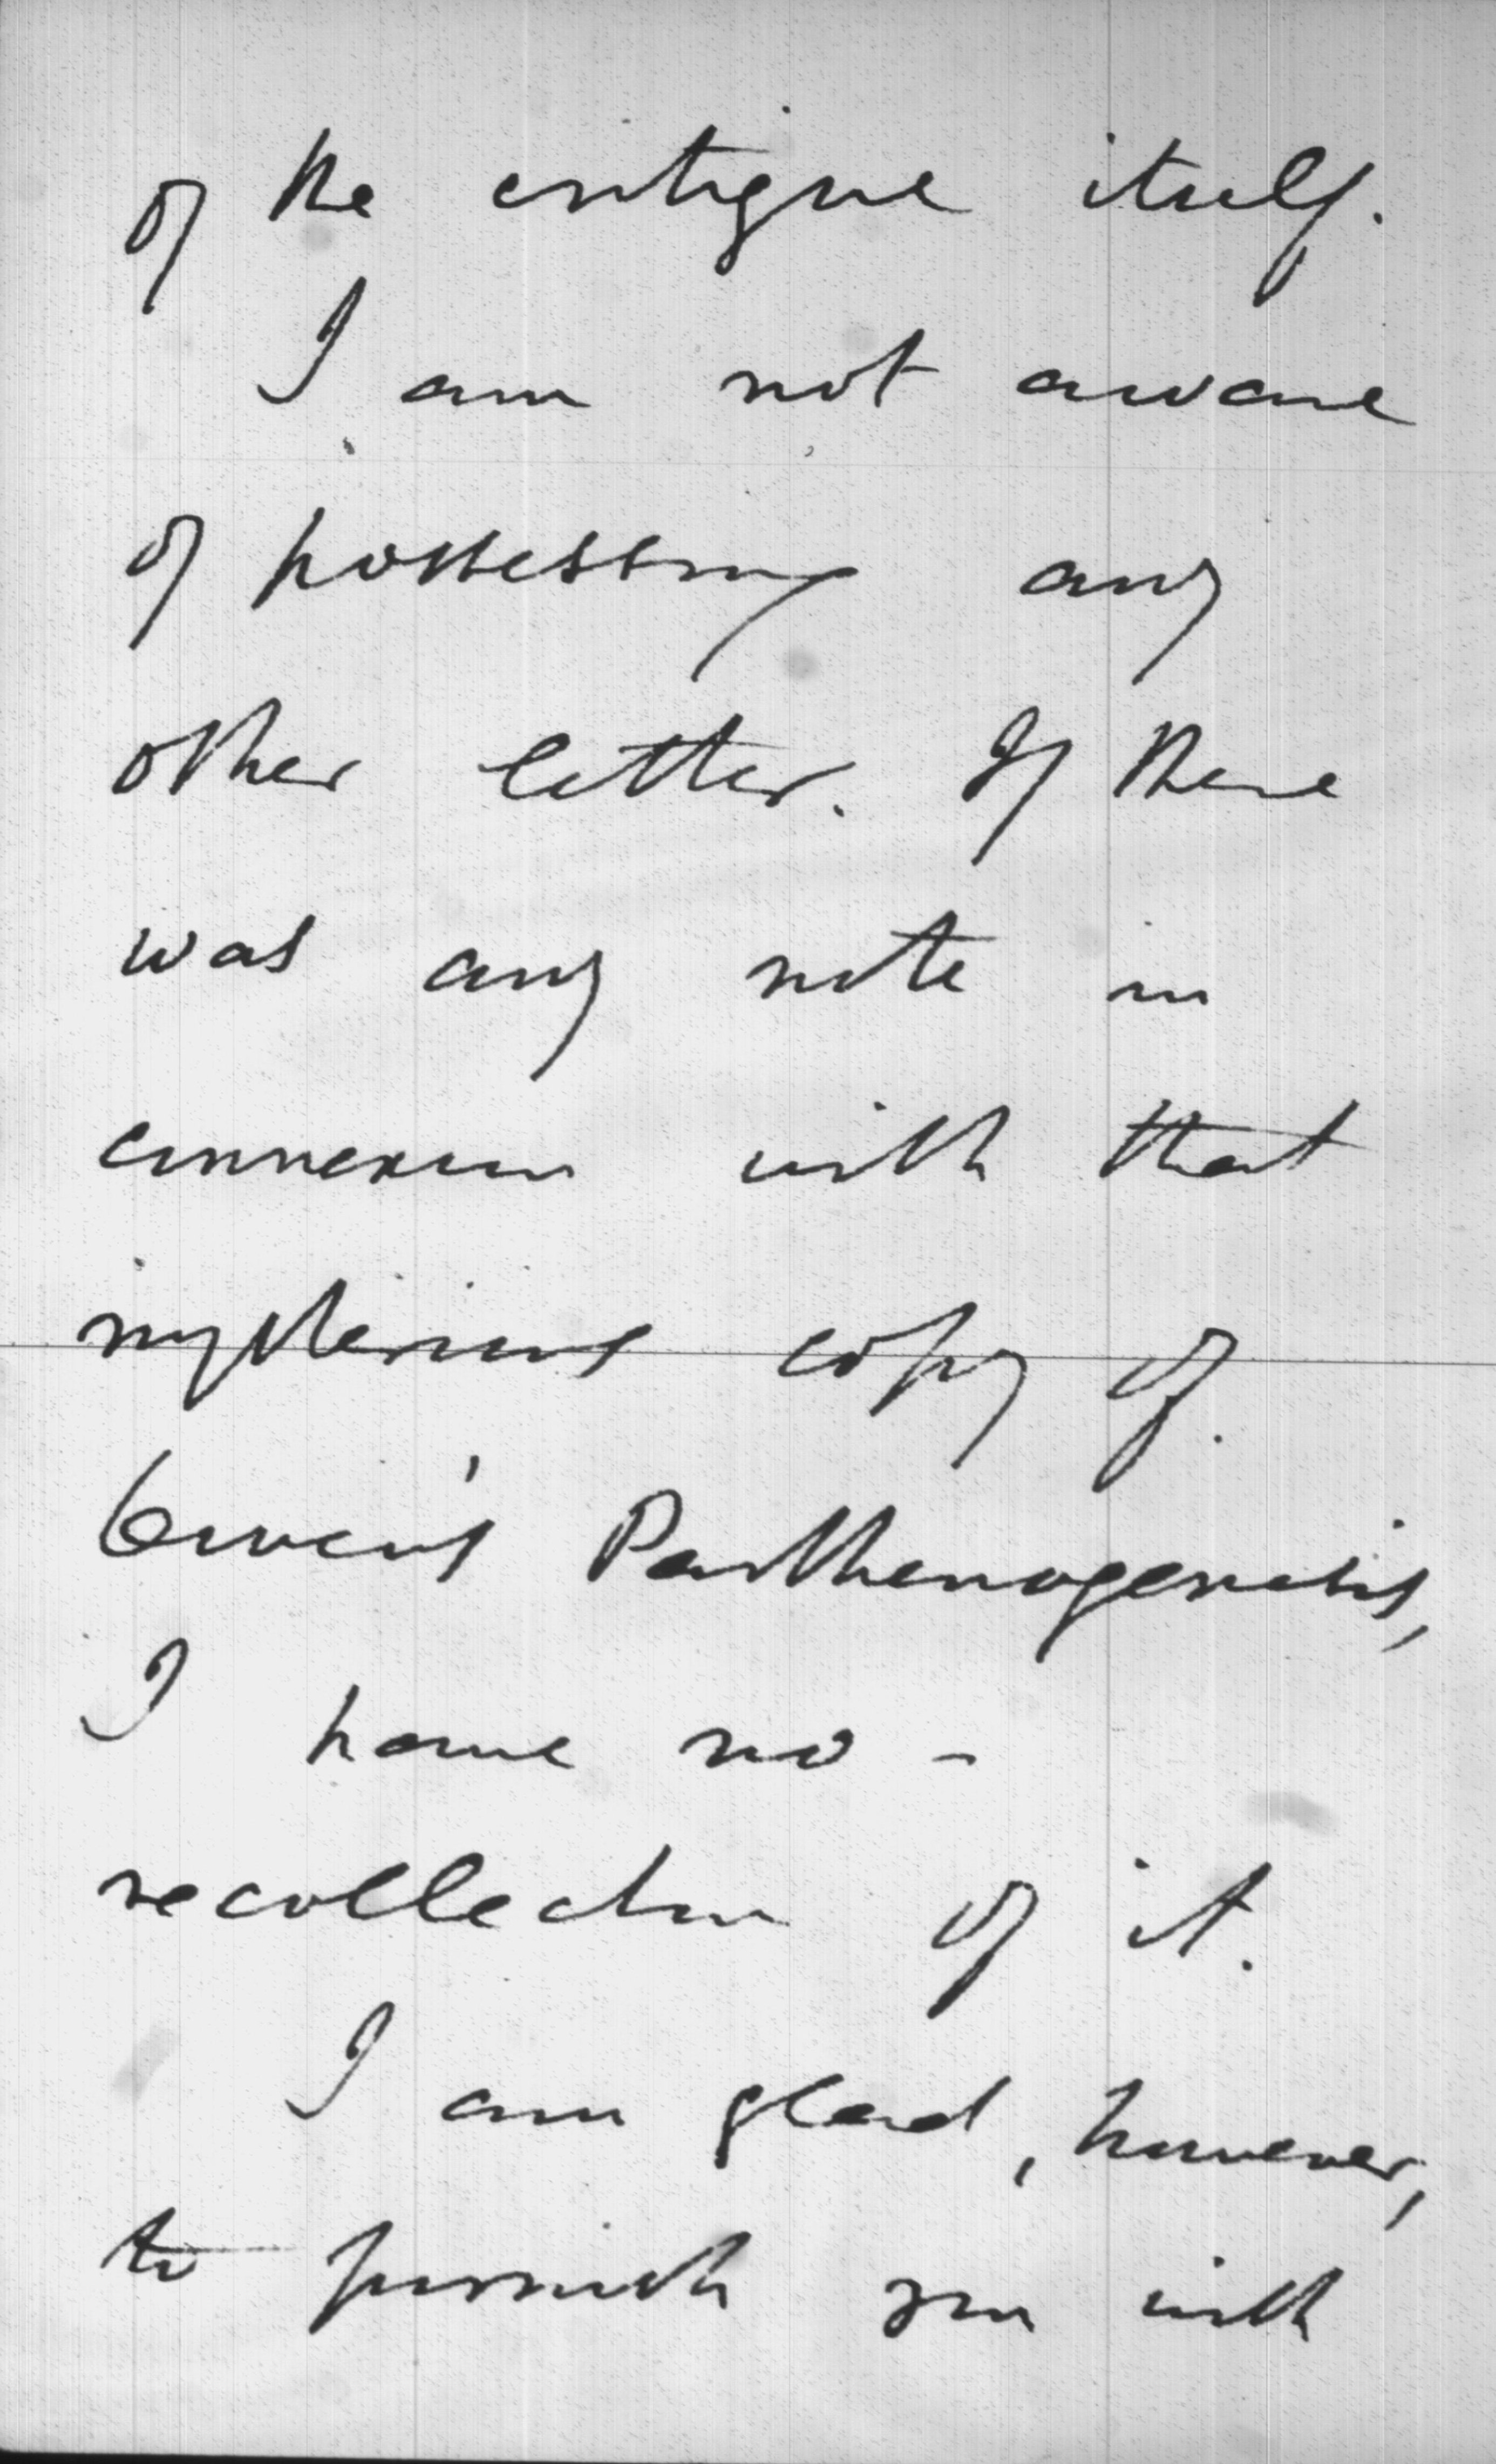 of the critique itself.
I am not aware
of possessing any
other letter. If there
was any note in
connexion with that
mysterious copy of
Owen's Parthenogenesis,
I have no -
recollection of it.
I am glad, however,
to furnish you with